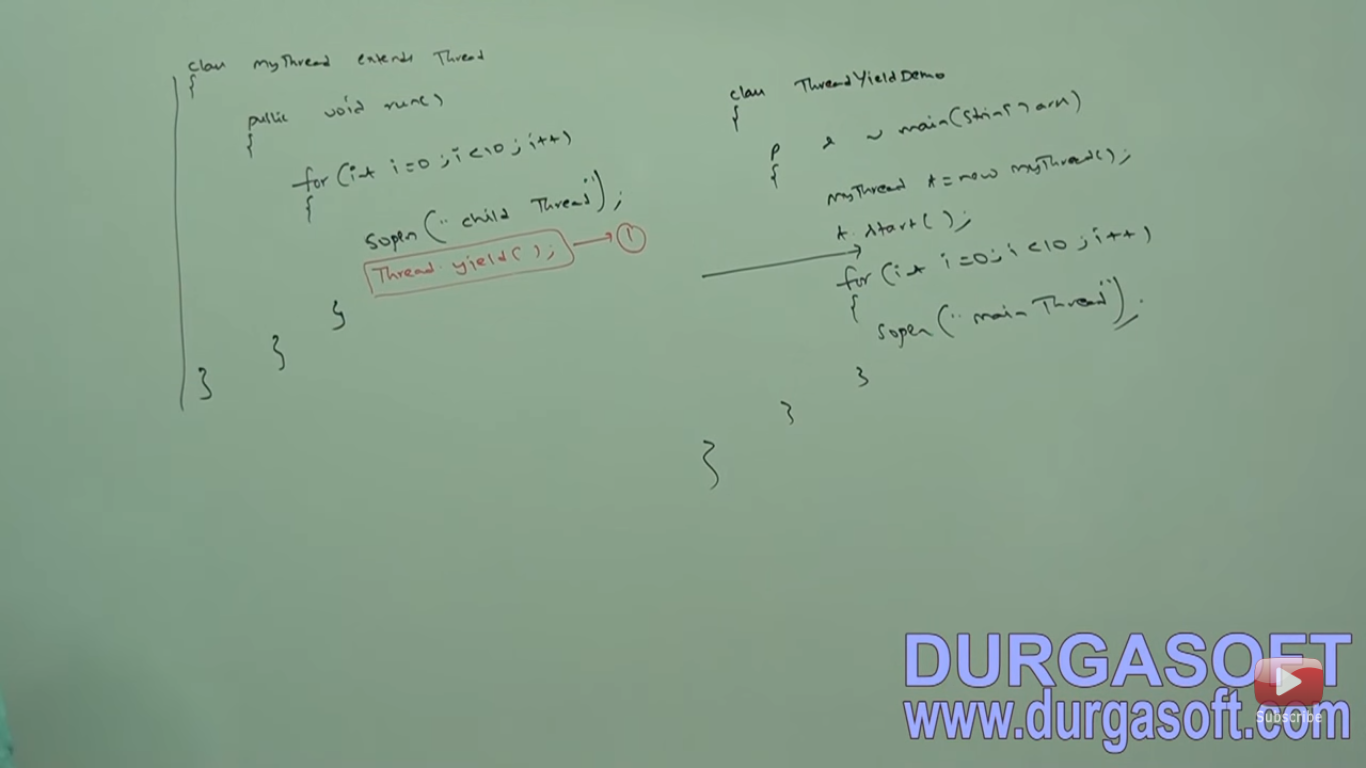 class MyThread extends Thread
{
public void run()
{
for(int i=0;i<10;i++)
{
sopln("child Thread");
Thread.yield(); → 1
}
}
}
class ThreadYieldDemo
{
p s v main(String[] args)
{
MyThread t=new MyThread();
t.start();
for(int i=0;i<10;i++)
{
sopln("main Thread");
}
}
}
DURGASOFT
www.durgasoft.com
Subscribe